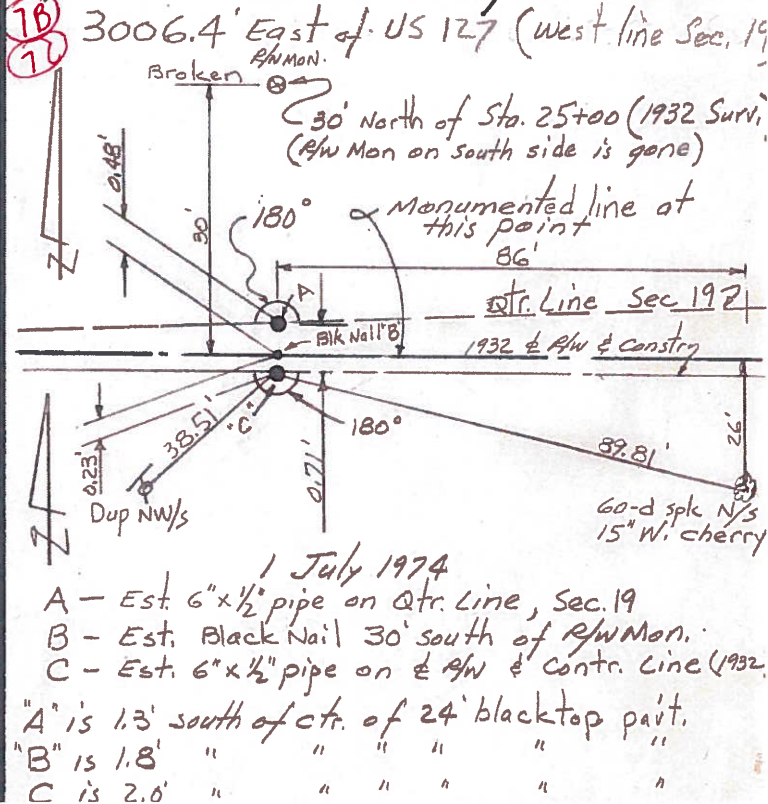 7B 3006.4' East of US 127 (west line Sec. 19
7C
R/W MON.
Broken
30' North of Sta. 25+00 (1932 Surv.
(R/W Mon on south side is gone)
0.48'
30'
180°
Monumented line at
this point
86'
Z
A
Qtr. Line Sec 19
Blk Nail "B"
1932 ℄ R/W & Constr
38.51'
"C"
180°
89.81'
26'
0.23'
0.71'
Z
Dup NW/s
60-d spk N/s
15" W. cherry
1 July 1974
A — Est. 6"x½" pipe on Qtr. Line, Sec. 19
B - Est. Black Nail 30' south of R/W Mon.
C - Est. 6"x½" pipe on ℄ R/W & Contr. Line (1932
"A" is 1.3' south of ctr. of 24' blacktop pav't.
"B" is 1.8' " " " " " "
C is 2.0' " " " " " "